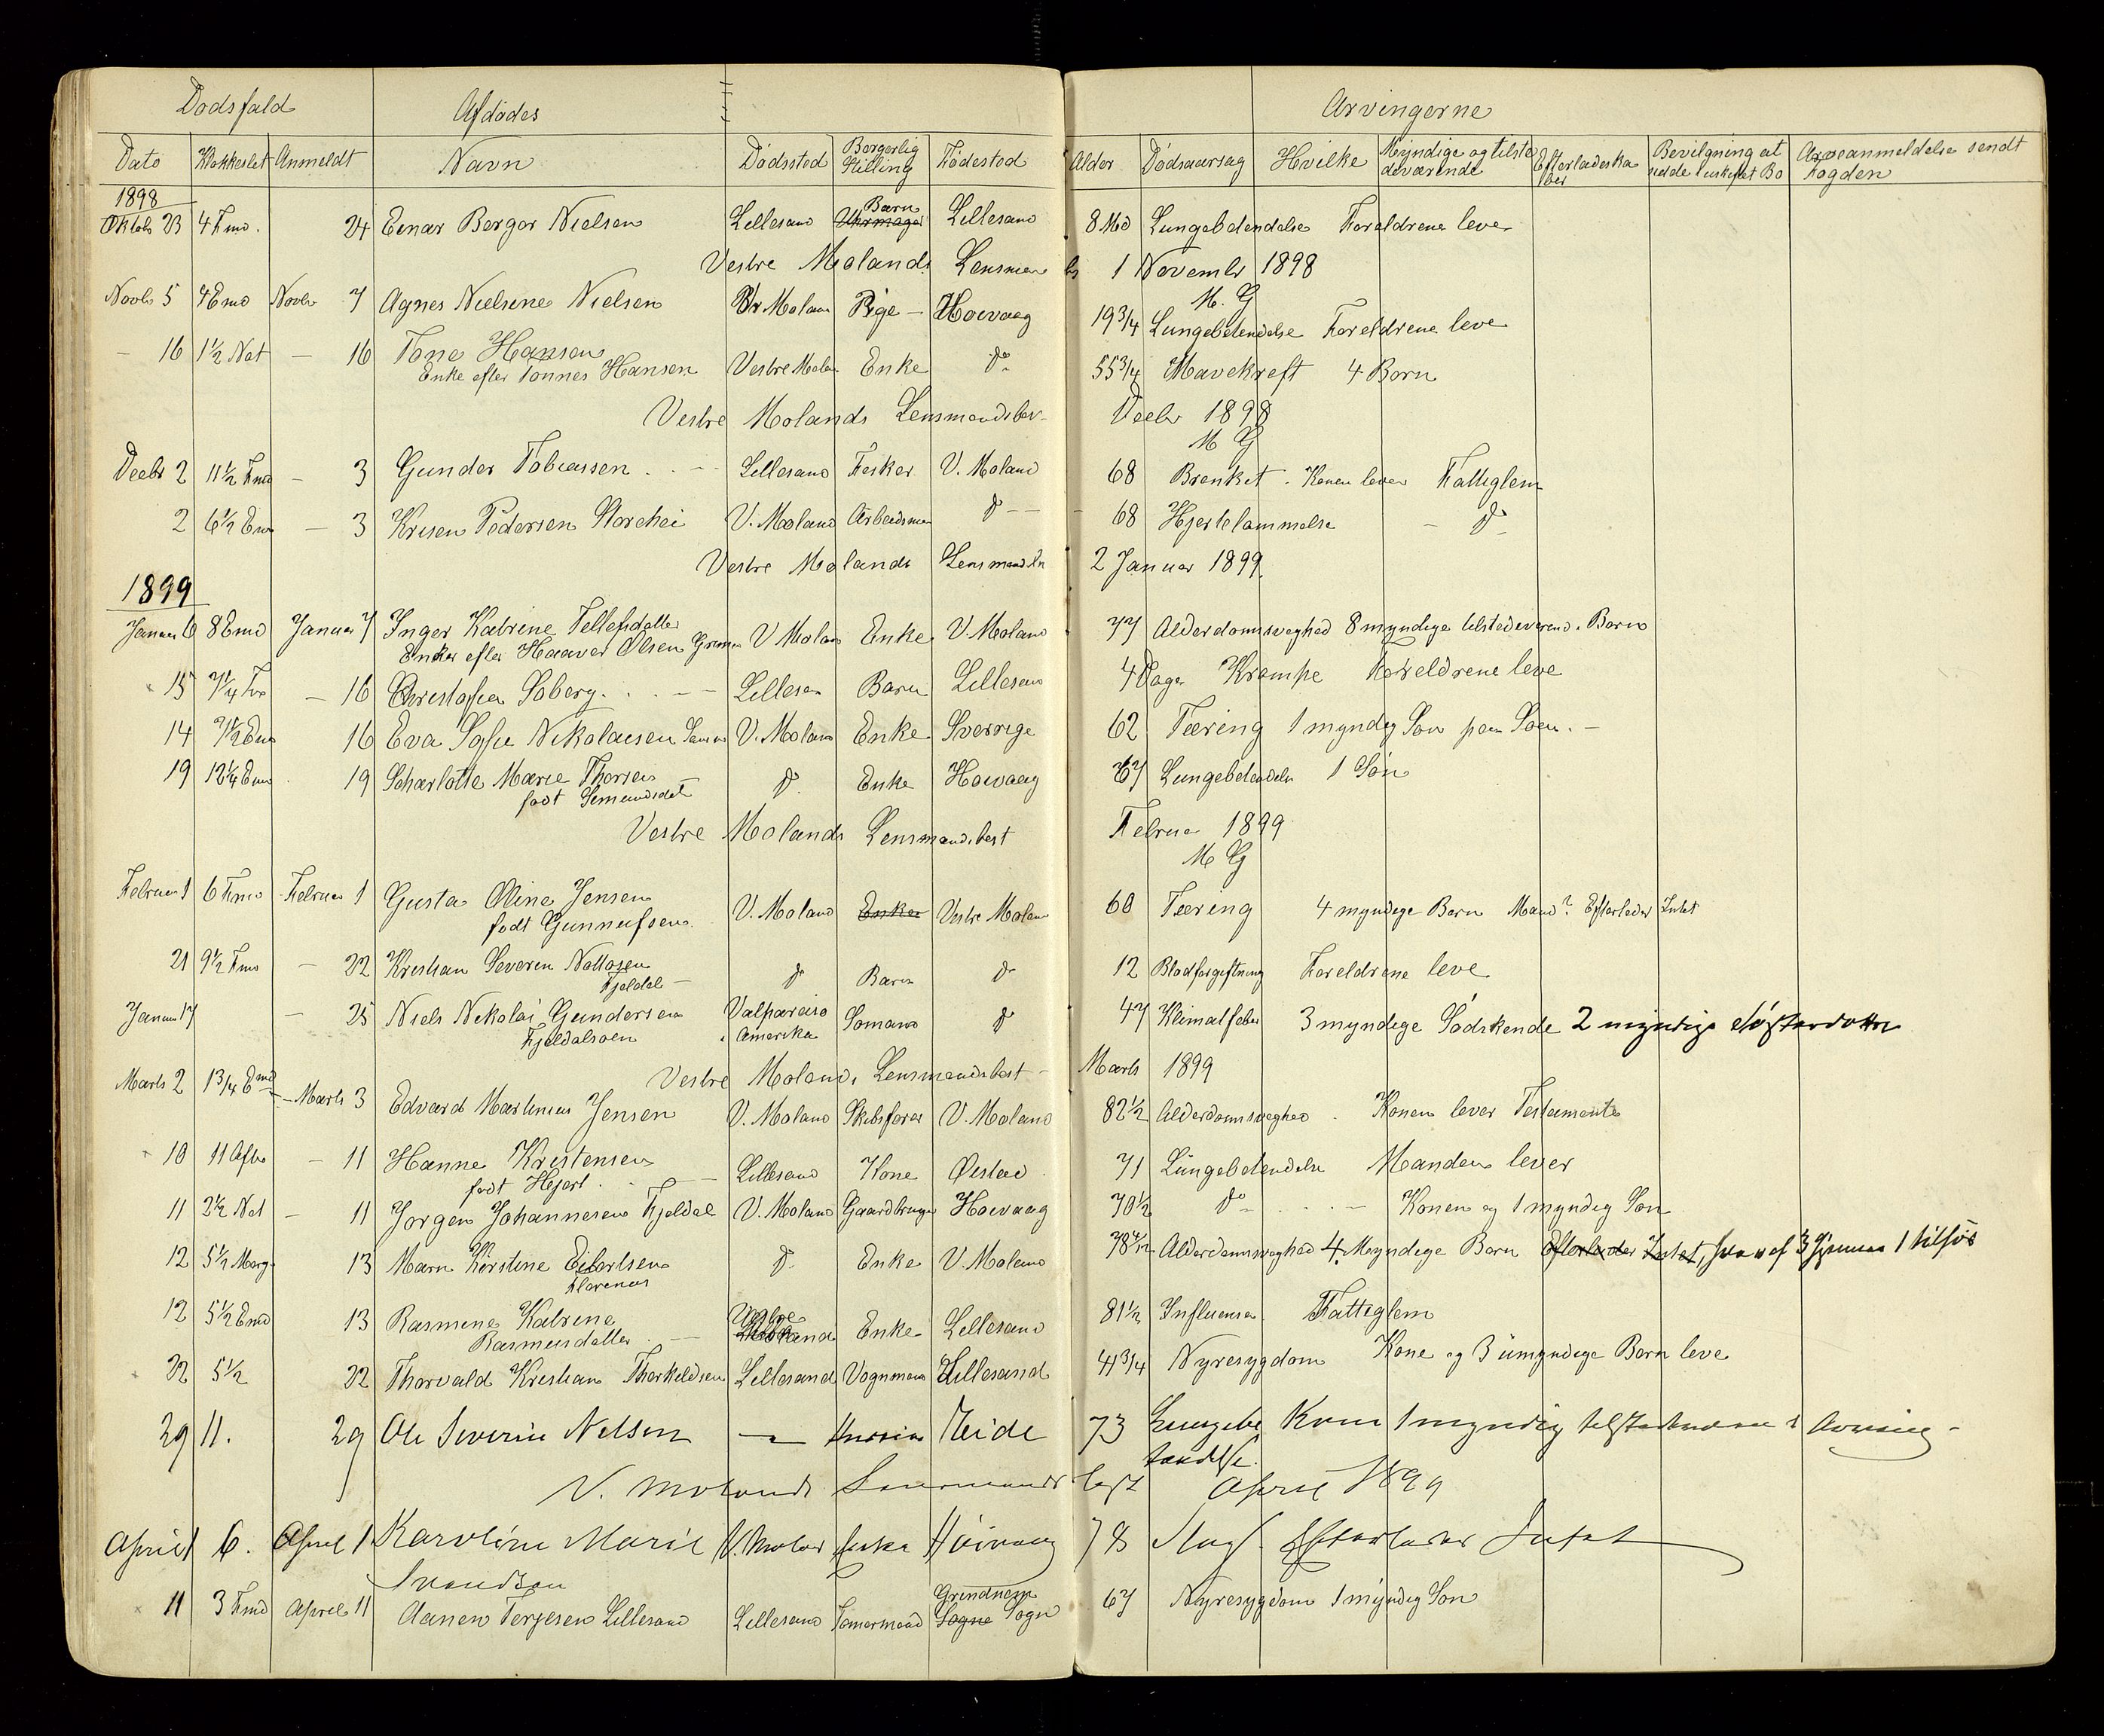 Dødsfald Afdødes Arvingerne
Dato Klokkeslet Anmeldt Navn Dødssted Borgerlig Stilling Fødested Alder Dødsaarsag Hvilke Myndige og tilstedeværende Efterladeskaber Bevilgning at sidde i uskiftet Bo Arveanmeldelse sendt Fogden
1898
Oktob 23 4 Fmd. 24 Einar Berger Nielsen Lillesand Barn Lillesand 8 Md Lungebetendelse Foreldrene lever
Vestre Molands Lensmand 1 Novembr 1898
M. G
Novbr 5 4 Emd Novbr 7 Agnes Nielsine Nielsen Vr Moland Pige - Hoevaag 19 3/4 Lungebetendelse Foreldrene leve
- 16 1 1/2 Nat - 16 Tone Hansen Vestre Molan Enke do 55 3/4 Mavekreft 4 Born
Enke efter Tonnes Hansen
Vestre Molands Lensmandsbes Decbr 1898
M G
Decbr 2 11 1/2 Fmd - 3 Gunder Tobiassen Lillesand Fisker V. Moland 68 Brenket - Konen lever Fattiglem
2 6 1/2 Em - 3 Moland Arbeidsman do - - 68 Hjertelammelse - do
Vestre Molands Lensmandsbe 2 Januar 1899
1899
Januar 6 8 Emd Januar 7 Inger Katrine Tellefsdatter V Molan Enke V. Moland 77 Alderdomssvaghed 8 myndige tilstedeverend. Born
Enke efter Haaver Olsen
15 7 1/4 Fm - 16 Soberg Lillesan Barn Lillesand 4 Dage Krampe Foreldrene leve
14 7 1/2 Em 16 Eva Sofie Nikolaisen V. Moland Enke Sverrige 62 Tæring 1 myndig Son paa Soen. -
19 12 1/4 Emd 19 Scharlotte Marie Thorsen do Enke Hoevaag 67 Lungebetendels 1 Søn
født
Vestre Molands Lensmandsbest Februar 1899
M G
Februar 1 6 Fmd Februar 1 Gusta Oline Jensen V. Moland Enke Vestre Molan 60 Tæring 4 myndige Born Mand? Efterlader Intet
født Gunnufsen
21 9 1/2 Fmd - 22 Kristian Severin Nottosen do Barn do 12 Blodforgiftning Foreldrene leve
Fjeldal -
Januar 17 - 25 Niels Nikolai Gundersen Valparaiso Somand do 47 Klimatfeber 3 myndige Sødskende 2 myndige Søsterdøttre
Fjeldalsoen Amerika
Vestre Molands Lensmandsbest - Marts 1899
Marts 2 1 3/4 Emd - Marts 3 Edvard Martinius Jensen V. Moland Skibsfører V. Moland 82 1/2 Alderdomssvaghed - Konen lever Testamente
10 11 Aften - 11 Hanne Kristensen Lillesand Kone Øiestad 71 Lungebetendelse Manden lever
født Hjort
11 2 1/2 Nat - 11 Jorgen Johannesen Fjeldal V. Moland Gaardbruger Hoevaag 70 1/2 do - Konen og 1 myndig Søn
12 5 1/2 Morg 13 Maren Kirstine Eilertsen do Enke V. Moland 78 Alderdomssvaghed 4 Myndige Born Efterlader Intet, hvoraf 3 hjemme 1 tilsjøs
12 5 1/2 Emd 13 Rasmine Katrine Enke Lillesand 81 1/2 Influensa Fattiglem
Rasmusdatter
22 5 1/2 22 Thorvald Kristian Thorkeldsen Lillesand Vognmand Lillesand 41 3/4 Nyresygdom Kone og 3 umyndige Born leve
29 11. 29 Ole Severin Nelsen - Eide 73 Lungebe Kone 1 myndig tilstedeværen Arving -
tændelse
V. Molands Lensmandsbest April 1899
April 1 6. April 1 Karoline Marie V. Moland Enke Høivaag 78 Slag Efterlader Intet
Svendsen
11 3 Fmd April 11 Aanen Terjesen Lillesand Lillesand Tomermand Sogne Sogn 67 Nyresygdom 1 myndig Søn